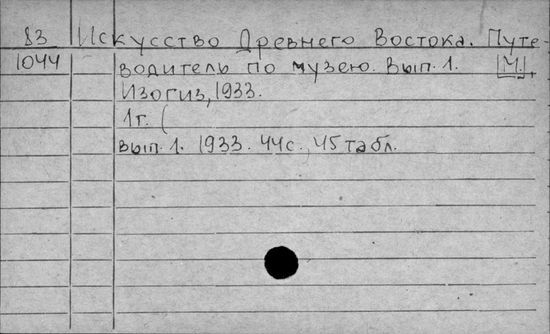 83 Искусство Древнего Востока. Путе-
1044 водитель по музею. Вып. 1. [М.],
Изогиз, 1933.
1 г. (
Вып. 1. 1933. 44 с., 45 табл.